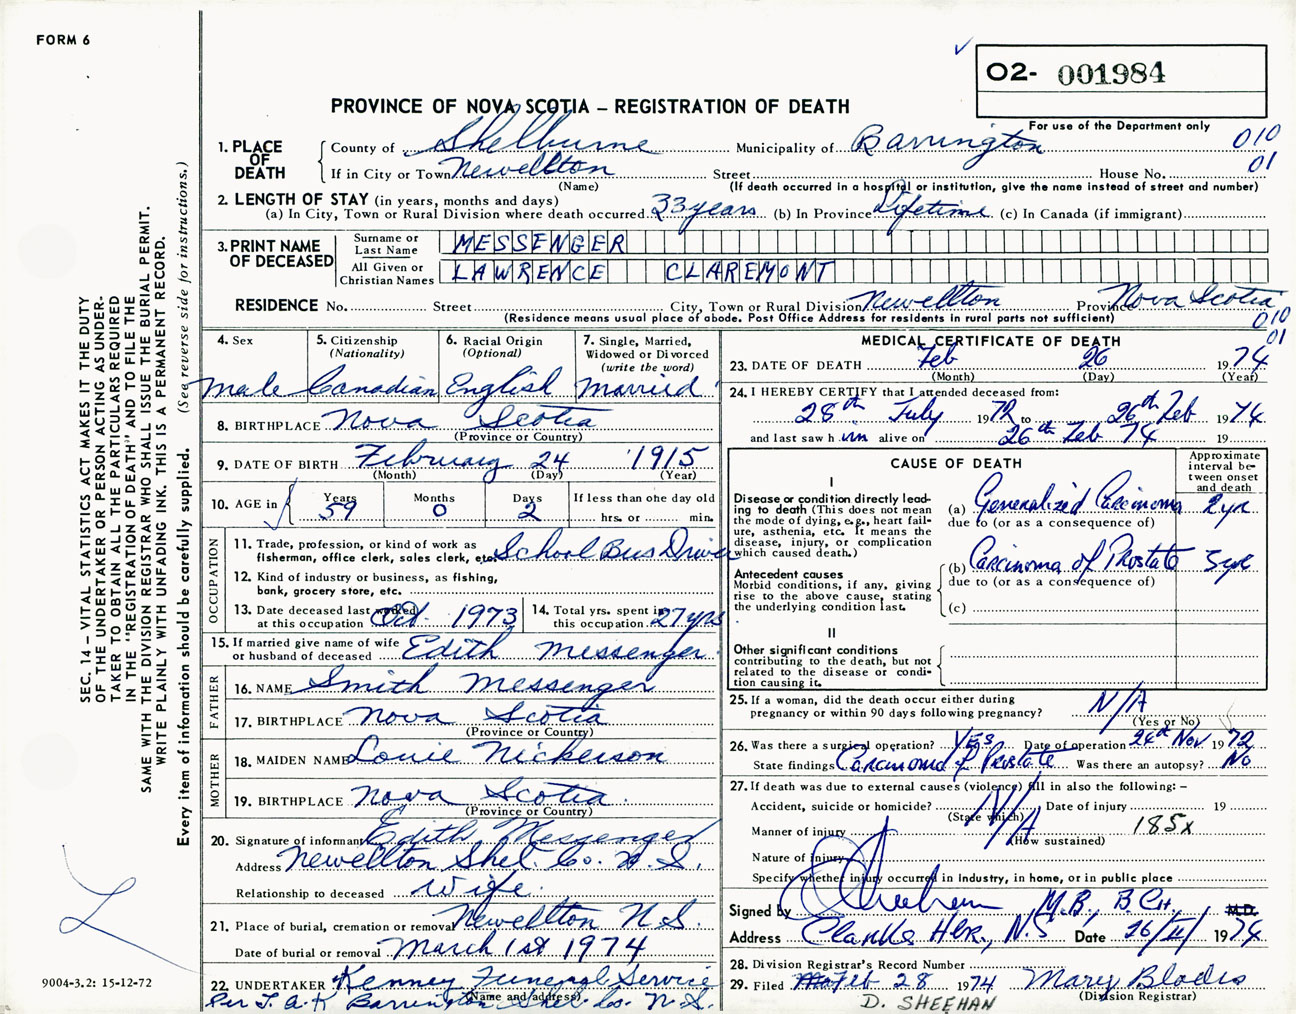 FORM 6
O2- 001984
PROVINCE OF NOVA SCOTIA – REGISTRATION OF DEATH
For use of the Department only
1. PLACE OF DEATH
County of Shelburne Municipality of Barrington 010
If in City or Town Newellton Street House No. 01
(Name) (If death occurred in a hospital or institution, give the name instead of street and number)
2. LENGTH OF STAY (in years, months and days)
(a) In City, Town or Rural Division where death occurred. 33 years (b) In Province Lifetime (c) In Canada (if immigrant)
3. PRINT NAME OF DECEASED
Surname or Last Name MESSENGER
All Given or Christian Names LAWRENCE CLAREMONT
RESIDENCE No. Street City, Town or Rural Division Newellton Province Nova Scotia
(Residence means usual place of abode. Post Office Address for residents in rural parts not sufficient) 010
01
4. Sex
Male
5. Citizenship
(Nationality)
Canadian
6. Racial Origin
(Optional)
English
7. Single, Married,
Widowed or Divorced
(write the word)
Married
8. BIRTHPLACE Nova Scotia
(Province or Country)
9. DATE OF BIRTH February 24 1915
(Month) (Day) (Year)
10. AGE in Years 59 Months 0 Days 2 If less than one day old
hrs. or min.
OCCUPATION
11. Trade, profession, or kind of work as
fisherman, office clerk, sales clerk, etc. School Bus Driver
12. Kind of industry or business, as fishing,
bank, grocery store, etc.
13. Date deceased last worked
at this occupation Oct. 1973
14. Total yrs. spent in
this occupation. 27 yrs
15. If married give name of wife
or husband of deceased Edith Messenger
FATHER
16. NAME Smith Messenger
17. BIRTHPLACE Nova Scotia
(Province or Country)
MOTHER
18. MAIDEN NAME Louie Nickerson
19. BIRTHPLACE Nova Scotia.
(Province or Country)
20. Signature of informant Edith Messenger
Address Newellton Shel. Co. N.S.
Relationship to deceased wife.
21. Place of burial, cremation or removal Newellton N.S.
Date of burial or removal March 1st 1974
22. UNDERTAKER Kenney Funeral Service
(Name and address)
Per T.A.K Barrington Shel. Co. N.S.
MEDICAL CERTIFICATE OF DEATH
23. DATE OF DEATH Feb 26 1974
(Month) (Day) (Year)
24. I HEREBY CERTIFY that I attended deceased from:
28th July 1972 to 26th Feb 1974
and last saw him alive on 26th Feb 74 19
CAUSE OF DEATH
Approximate interval between onset and death
I
Disease or condition directly leading to death (This does not mean the mode of dying, e.g., heart failure, asthenia, etc. It means the disease, injury, or complication which caused death.)
(a) Generalized Carcinoma 2 yr
due to (or as a consequence of)
Antecedent causes
Morbid conditions, if any, giving rise to the above cause, stating the underlying condition last.
(b) Carcinoma of Prostate 3 yr
due to (or as a consequence of)
(c)
II
Other significant conditions
contributing to the death, but not related to the disease or condition causing it.
25. If a woman, did the death occur either during
pregnancy or within 90 days following pregnancy? N/A
(Yes or No)
26. Was there a surgical operation? YES Date of operation 24th Nov 1972
State findings Carcinoma of Prostate Was there an autopsy? No
27. If death was due to external causes (violence) fill in also the following: –
Accident, suicide or homicide? N/A Date of injury 19
(State which)
Manner of injury 185x
(How sustained)
Nature of injury
Specify whether injury occurred in Industry, in home, or in public place
Signed by Sheehan M.B., B.CH. M.D.
Address Clarks Hbr., N.S Date 26/II/ 1974
28. Division Registrar's Record Number
29. Filed Feb 28 1974 Mary Blades
(Division Registrar)
D. SHEEHAN
SEC. 14 – VITAL STATISTICS ACT MAKES IT THE DUTY
OF THE UNDERTAKER OR PERSON ACTING AS UNDER-
TAKER TO OBTAIN ALL THE PARTICULARS REQUIRED
IN THE "REGISTRATION OF DEATH" AND TO FILE THE
SAME WITH THE DIVISION REGISTRAR WHO SHALL ISSUE THE BURIAL PERMIT.
WRITE PLAINLY WITH UNFADING INK. THIS IS A PERMANENT RECORD.
Every item of information should be carefully supplied. (See reverse side for instructions.)
9004-3.2: 15-12-72